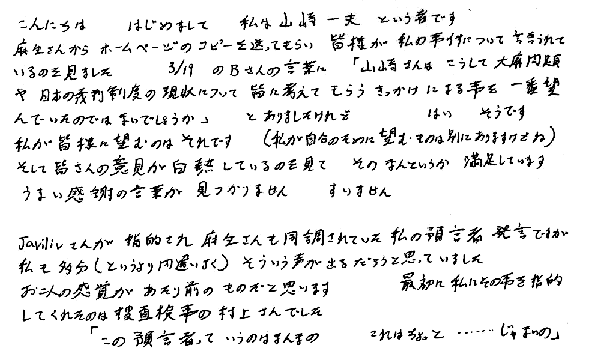 こんにちは　はじめまして　私は山崎一夫という者です
麻生さんから ホームページのコピーを送ってもらい 皆様が 私の事件について 書きこまれて
いるのを見ました　3/19 のBさんの言葉に 「山崎さんは こうして 大麻問題
や 日本の裁判制度の現状について 皆に考えて もらう きっかけ になる事を 一番望
んでいたのではないでしょうか」 と ありましたけれど　はい　そうです
私が皆様に望むのはそれです　(私が自分のために望むものは別にありますけどね)
そして皆さんの意見が白熱しているのを見て　その なんというか 満足しています
うまい感謝の言葉が 見つかりません　すいません
Javilivさんが 指摘され 麻生さんも同調されていた 私の預言者 発言ですが
私も多分(というより間違いなく) そういう声が出るだろうと思っていました
お二人の感覚が あたり前の ものだと思います　最初に 私にその事を指摘
してくれたのは捜査検事の村上さんでした
「この 預言者って いうのはまんまの　これはちょっと ……じゃないの」